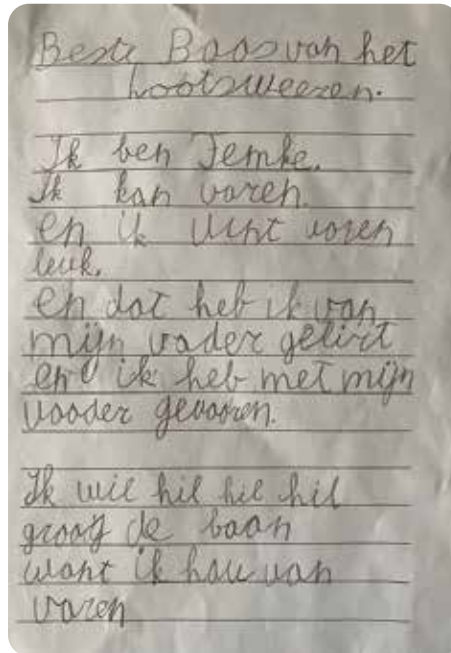 Beste Baas van het
lootsweezen.
Ik ben Jemke.
Ik kan varen.
en ik vint varen
leuk.
en dat heb ik van
mijn vader gelirt
en ik heb met mijn
vaader gevaaren.
Ik wil hil hil hil
graag de baan
want ik hau van
varen